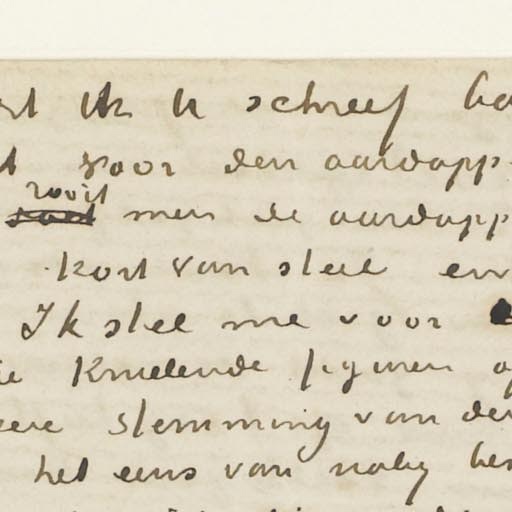 ik U schreef
voor den aardapp
rooit
men de aardapp
kort van steel en
Ik stel me voor
knielende figuren op
stemming van den
het eens van nabij